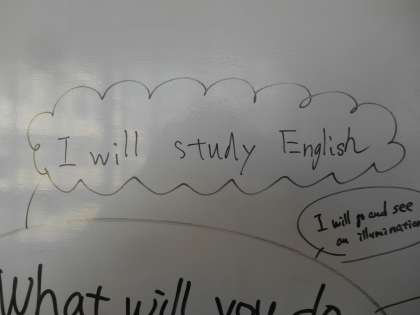 I will study English
I will go and see
an illumination
What will you do